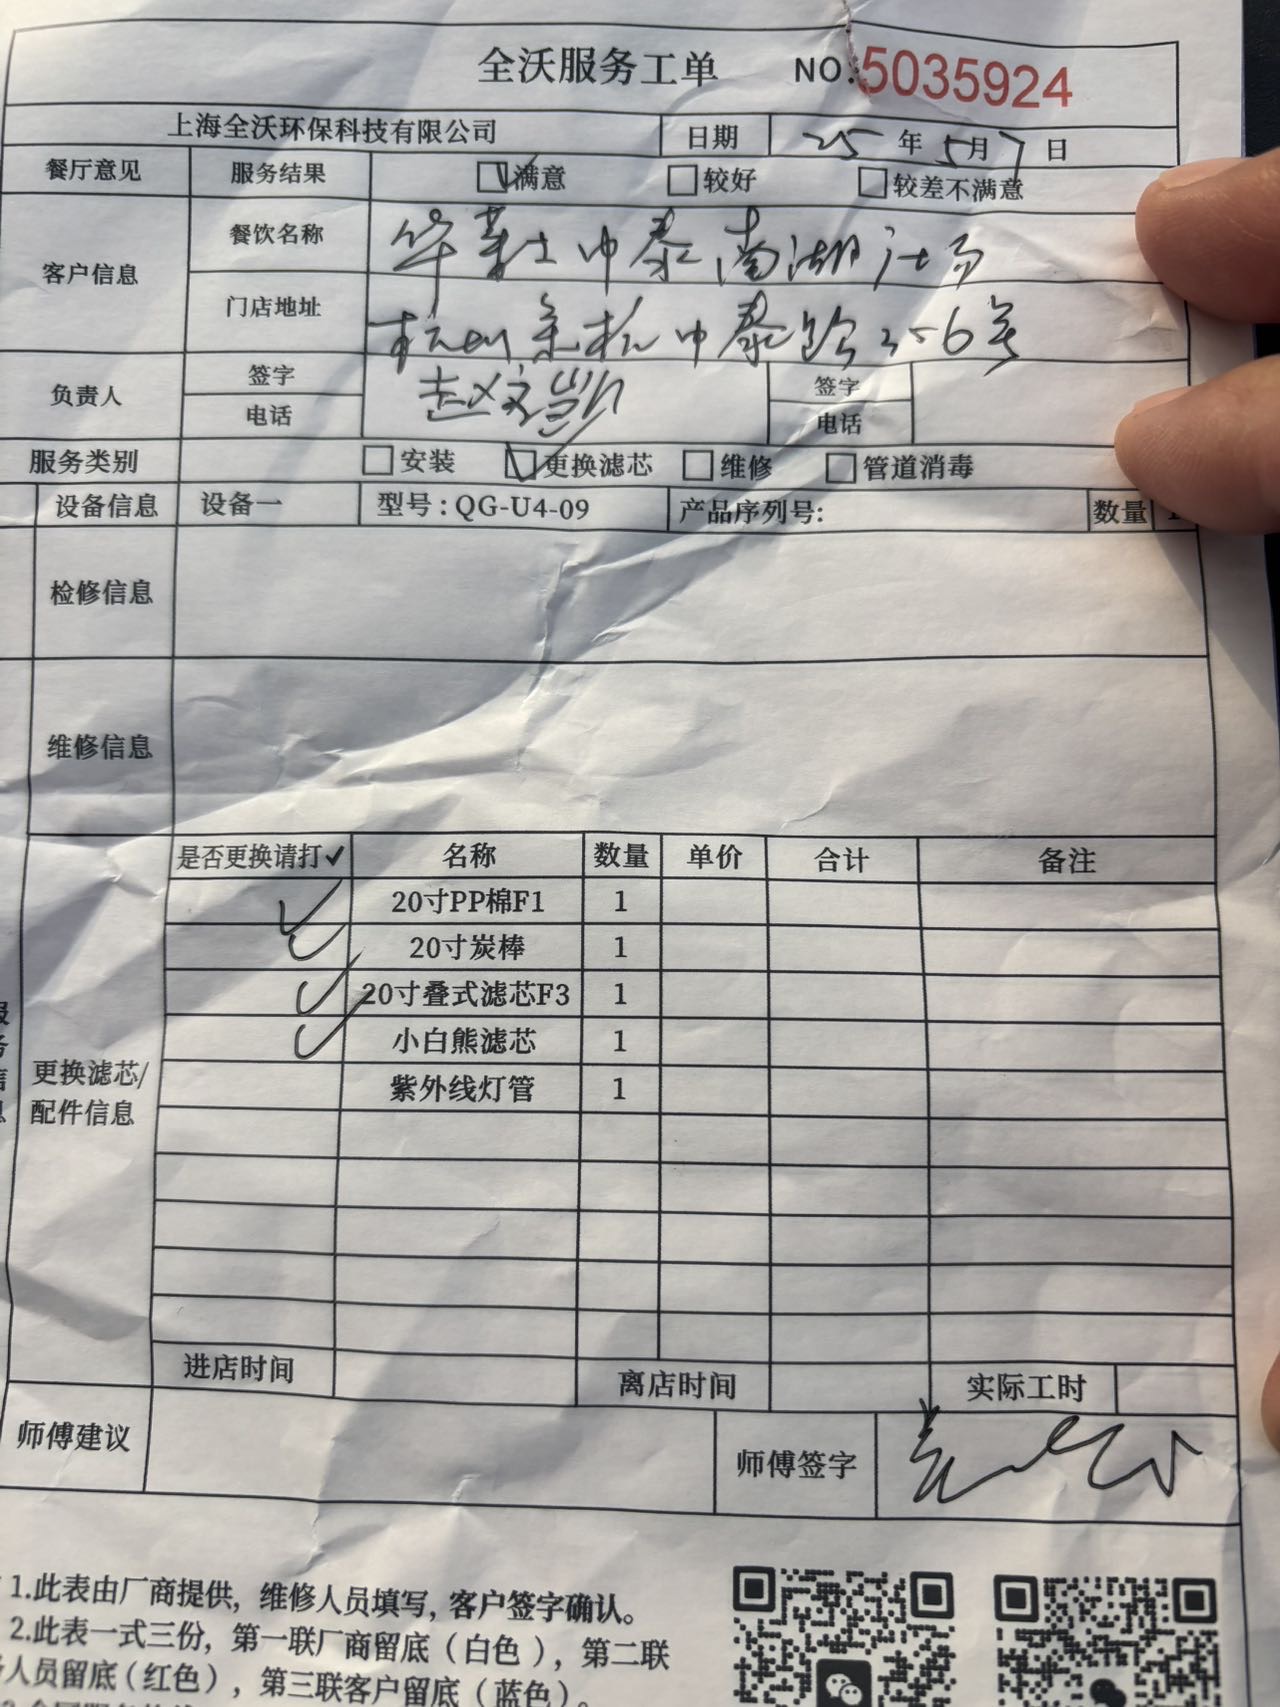 全沃服务工单 NO.5035924
上海全沃环保科技有限公司 日期 25年5月7日
餐厅意见 服务结果 满意 较好 较差不满意
客户信息 餐饮名称 华莱士中泰南湖广场
门店地址 杭州余杭中泰路356号
负责人 签字 赵文凯 签字
电话 电话
服务类别 安装 更换滤芯 维修 管道消毒
设备信息 设备一 型号:QG-U4-09 产品序列号: 数量 1
检修信息
维修信息
是否更换请打✓ 名称 数量 单价 合计 备注
✓ 20寸PP棉F1 1
✓ 20寸炭棒 1
✓ 20寸叠式滤芯F3 1
✓ 小白熊滤芯 1
更换滤芯/
配件信息
紫外线灯管 1
进店时间 离店时间 实际工时
师傅建议 师傅签字
1.此表由厂商提供,维修人员填写,客户签字确认。
2.此表一式三份,第一联厂商留底(白色),第二联
人员留底(红色),第三联客户留底(蓝色)。